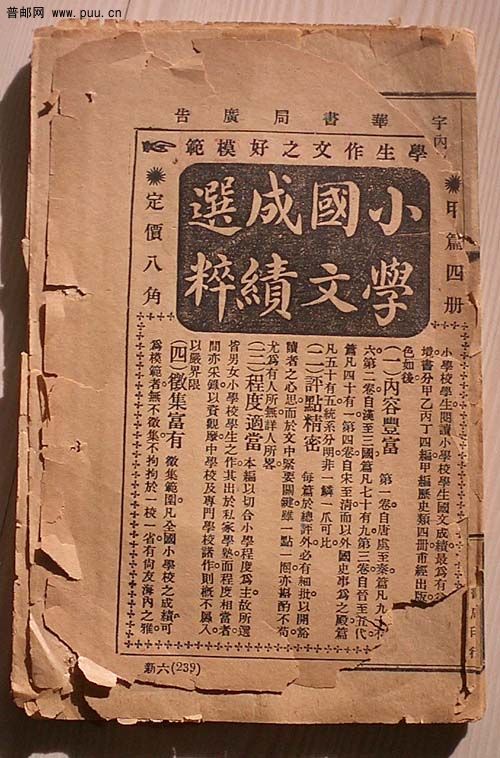 普邮网
www.puu.cn
字內
華書局廣告
學生作文之好模範
甲篇四册
小學國文成績選粹
定價八角
小學校學生閱讀小學校學生國文成績最為有益
增書分甲乙丙丁四編甲編歷史類四冊市經出版
色如後
（一）內容豐富　第一卷自唐虞至秦篇凡九十
六第二卷自漢至三國篇凡七十有九第三卷自晉至五代
篇凡四十有一第四卷自宋至清而以外國史事為之殿篇
凡五十有五統系分明非一鱗一爪可比
（二）評點精密　每篇於總評外必有細批以開豁
讀者之心思而於文中緊要關鍵雖一點一圈亦斟酌不苟
尤為有人所無詳人所畧
（三）程度適當　本編以切合小學程度為主故所選
皆男女小學校學生之作其出於私家學塾而程度相當者
間亦采錄以資觀摩中學校及專門學校諸作則概不羼入
以嚴界限
（四）徵集富有　徵集範圍凡全國小學校之成績可
為模範者無不徵集不拘拘於一校一省有尙友海內之雅
書局印行
新六(239)